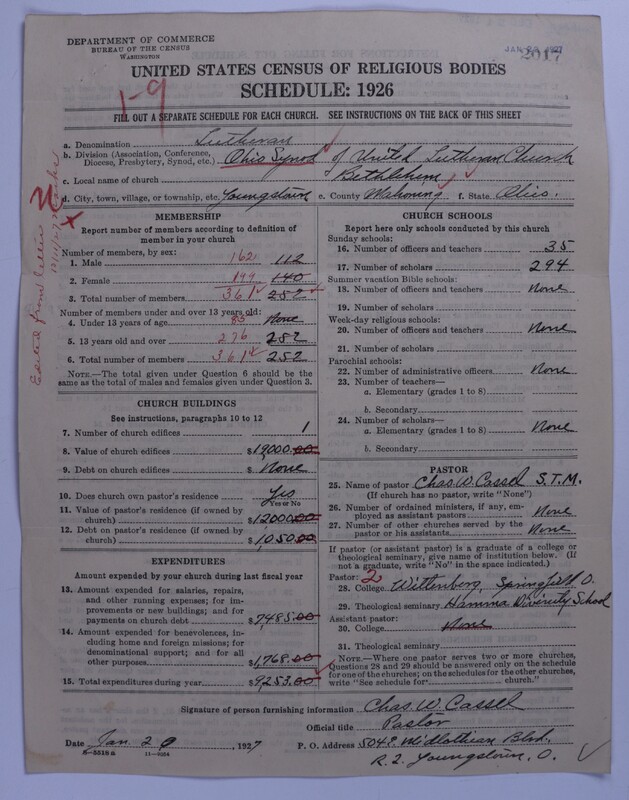 DEPARTMENT OF COMMERCE
BUREAU OF THE CENSUS
WASHINGTON
2017
UNITED STATES CENSUS OF RELIGIOUS BODIES
SCHEDULE: 1926
1-9
FILL OUT A SEPARATE SCHEDULE FOR EACH CHURCH. SEE INSTRUCTIONS ON THE BACK OF THIS SHEET
a. Denomination Lutheran
b. Division (Association, Conference, Diocese, Presbytery, Synod, etc.) Ohio Synod of United Lutheran Church
c. Local name of church Bethlehem
d. City, town, village, or township, etc. Youngstown e. County Mahoning f. State Ohio.
MEMBERSHIP
Report number of members according to definition of member in your church
Number of members, by sex:
1. Male 162 112
2. Female 199 140
3. Total number of members 361 252
Number of members under and over 13 years old:
4. Under 13 years of age 85 None
5. 13 years old and over 276 252
6. Total number of members 361 252
NOTE.—The total given under Question 6 should be the same as the total of males and females given under Question 3.
CHURCH BUILDINGS
See instructions, paragraphs 10 to 12
7. Number of church edifices 1
8. Value of church edifices $19000.00
9. Debt on church edifices $ None
10. Does church own pastor's residence Yes
Yes or No
11. Value of pastor's residence (if owned by church) $12000.00
12. Debt on pastor's residence (if owned by church) $1050.00
EXPENDITURES
Amount expended by your church during last fiscal year
13. Amount expended for salaries, repairs, and other running expenses; for improvements or new buildings; and for payments on church debt $7485.00
14. Amount expended for benevolences, including home and foreign missions; for denominational support; and for all other purposes $1,768.00
15. Total expenditures during year $9253.00
CHURCH SCHOOLS
Report here only schools conducted by this church
Sunday schools:
16. Number of officers and teachers 35
17. Number of scholars 294
Summer vacation Bible schools:
18. Number of officers and teachers None
19. Number of scholars
Week-day religious schools:
20. Number of officers and teachers None
21. Number of scholars
Parochial schools:
22. Number of administrative officers None
23. Number of teachers—
a. Elementary (grades 1 to 8)
b. Secondary
24. Number of scholars—
a. Elementary (grades 1 to 8) None
b. Secondary
PASTOR
25. Name of pastor Chas. W. Cassel S.T.M.
(If church has no pastor, write "None")
26. Number of ordained ministers, if any, employed as assistant pastors None
27. Number of other churches served by the pastor or his assistants None
If pastor (or assistant pastor) is a graduate of a college or theological seminary, give name of institution below. (If not a graduate, write "No" in the space indicated.)
Pastor: 2
28. College Wittenberg, Springfield O.
29. Theological seminary Hamma Divinity School
Assistant pastor:
30. College None
31. Theological seminary
NOTE.—Where one pastor serves two or more churches, Questions 28 and 29 should be answered only on the schedule for one of the churches; on the schedules for the other churches, write "See schedule for church."
Signature of person furnishing information Chas. W. Cassel
Official title Pastor
Date Jan. 20, 1927
P. O. Address 504 E. Midlothian Blvd.
R. 2. Youngstown, O.
8—5518 a 11—9034